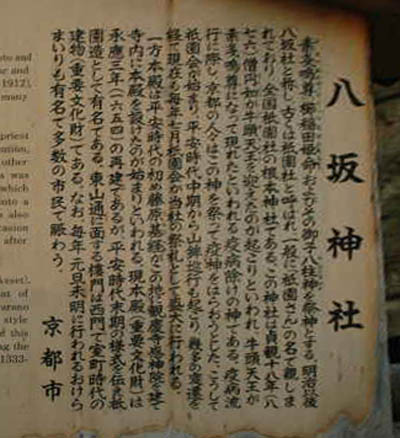 八坂神社
素戔嗚尊、櫛稲田姫命およびその御子八柱神を祭神とする。明治以後
八坂社と称し、古くは祇園社と呼ばれ、一般に「祇園さん」の名で親しま
れており、全国祇園社の根本神社である。この神社は貞観十八年（八
七六）僧円如が牛頭天王を迎えたのが起こりといわれ、牛頭天王が
素戔嗚尊になって現れたといわれる疫病除けの神である。疫病流
行に際し、京都の人々はこの神を祭って疫神をはらおうとした。こうして
祇園会が始まり、平安時代中期から山鉾巡行も起こり、幾多の変遷を
経て現在も毎年七月祇園会が当社の祭礼として盛大に行われる。
一方本殿は平安時代の初め藤原基経がこの地に観慶寺感神院を建て
寺内に本殿を設けたのが始まりといわれる。現本殿（重要文化財）は
承應三年（一六五四）の再建であるが、平安時代末期の様式を伝え祇
園造として有名である。東山通に面する楼門は西門で室町時代の
建物（重要文化財）である。なお、毎年、元旦未明に行われるおけら
まいりも有名で多数の市民で賑わう。
京都市
and
and
1912),
many
priest
other
was
which
into a
also
after
of
style
of this
the
1333-